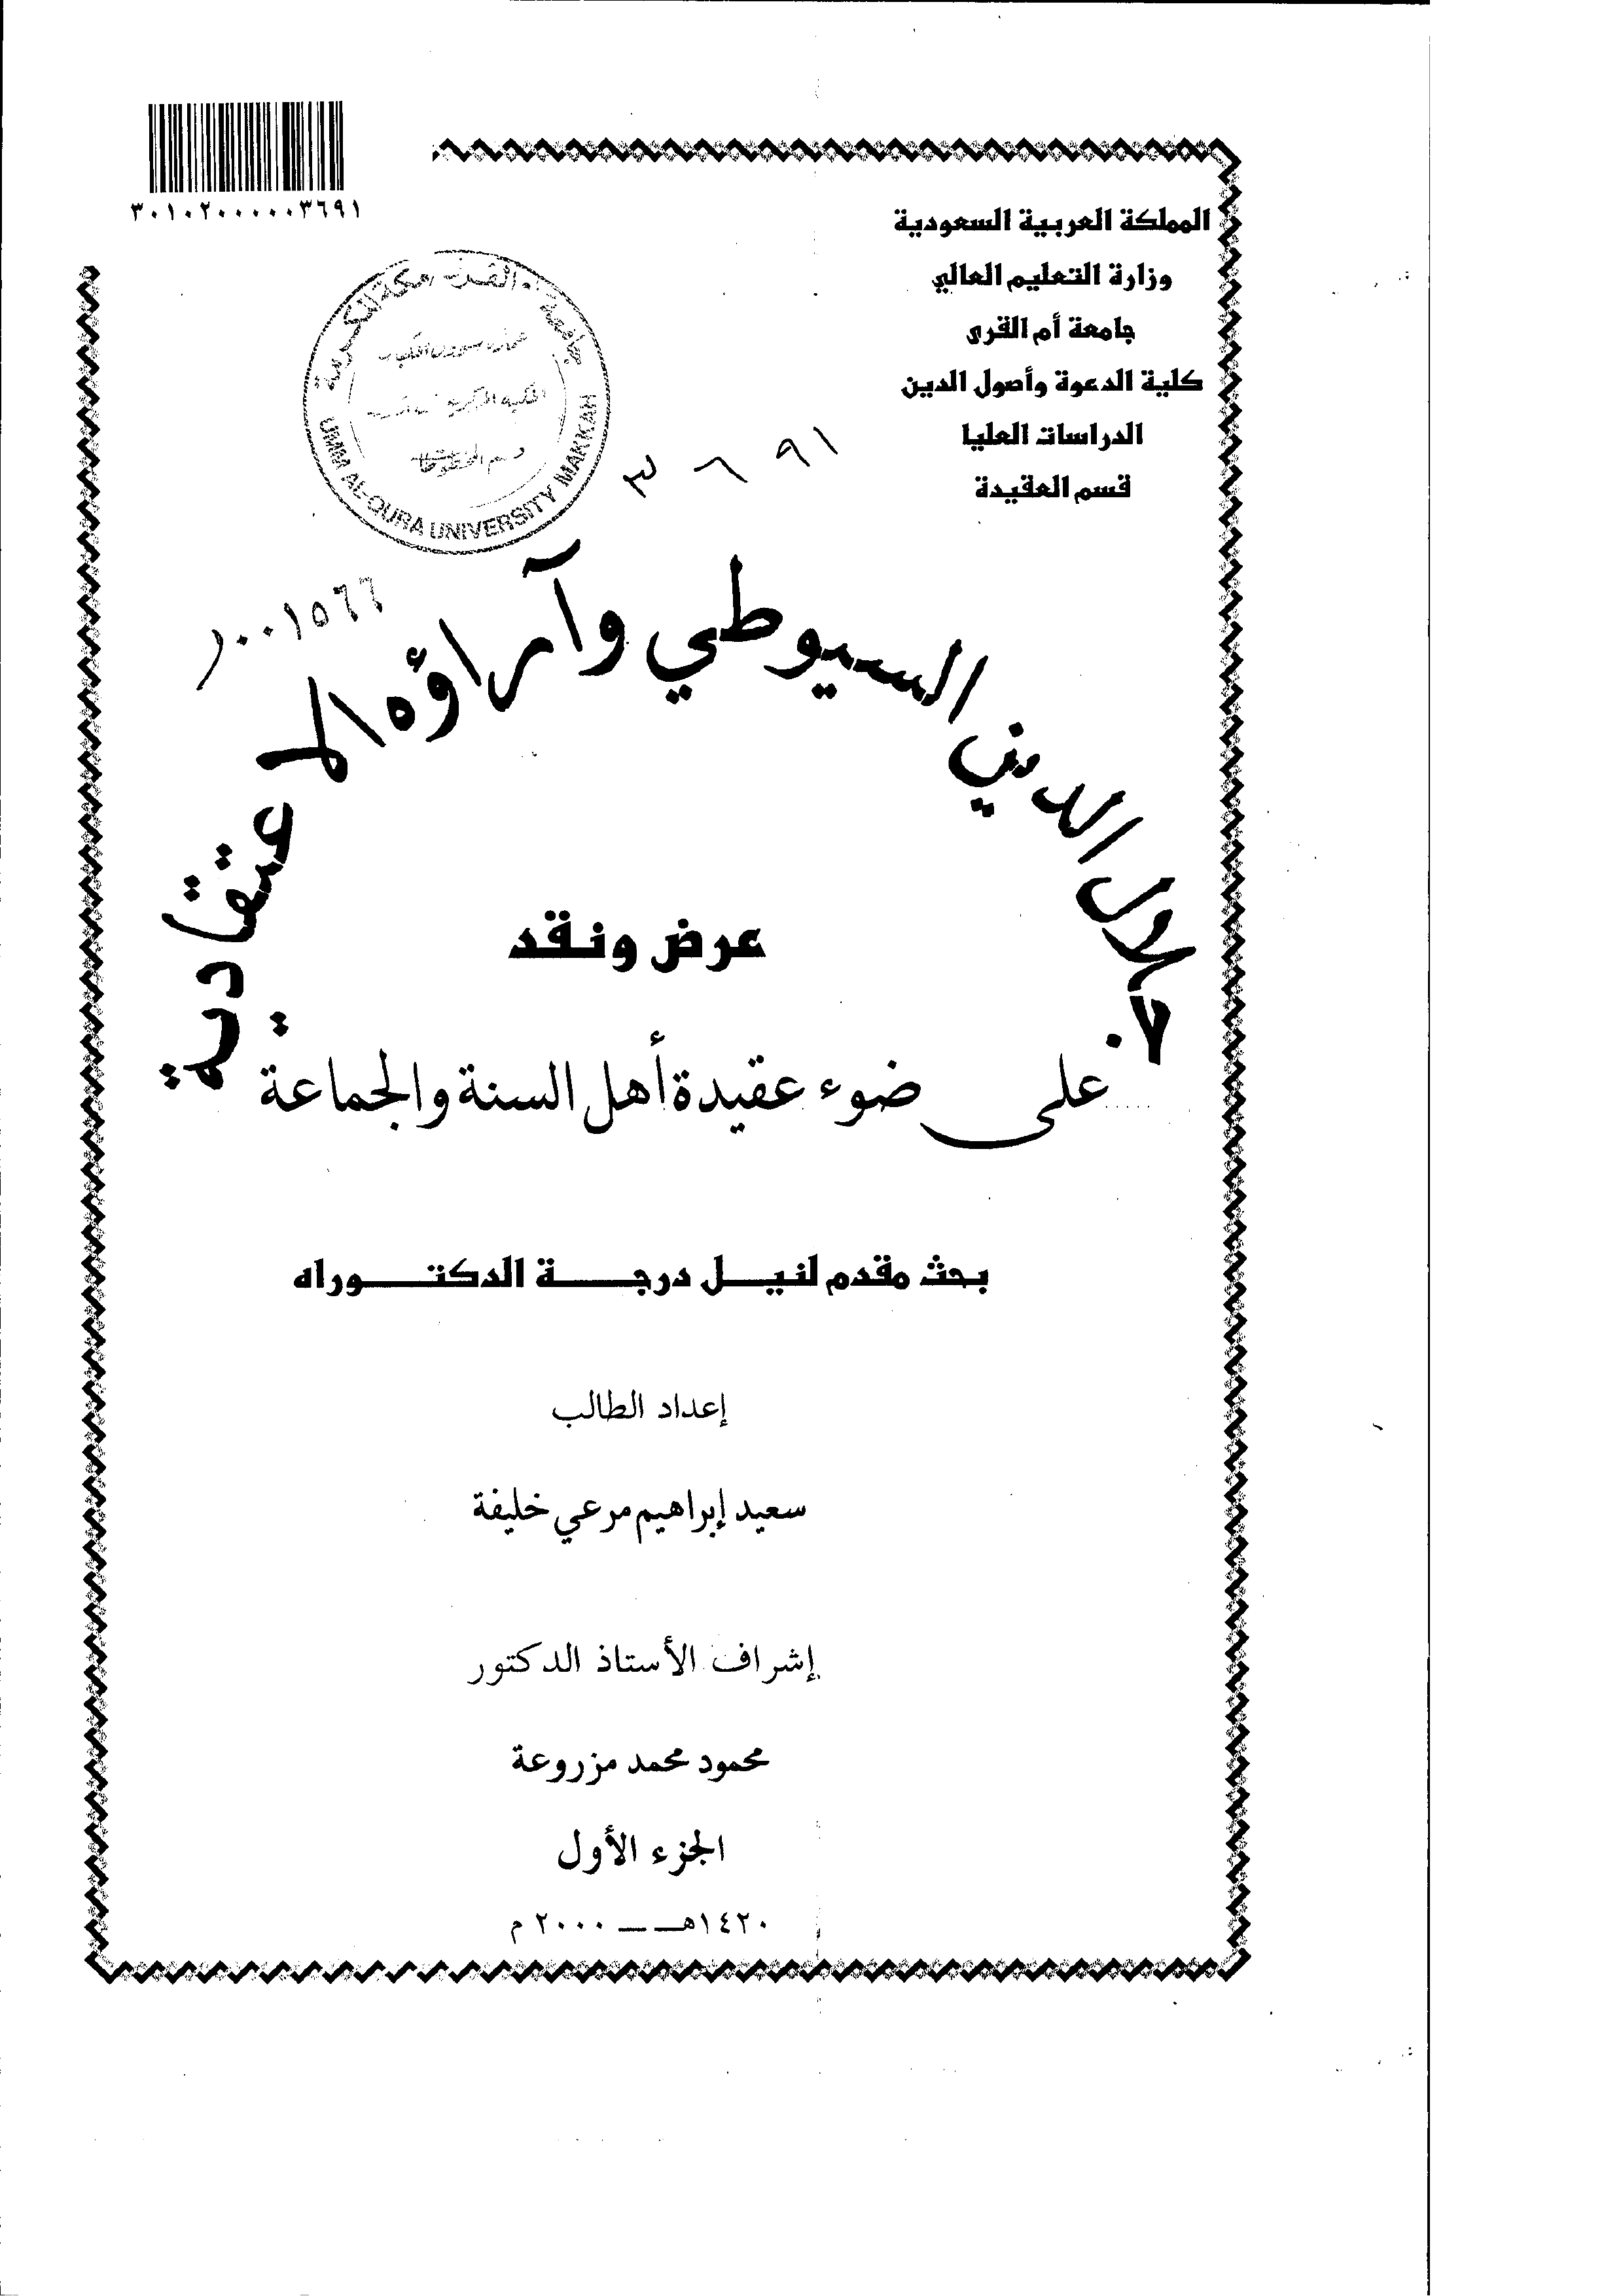 ٣٠١٠٢٠٠٠٠٠٣٦٩١
المملكة العربية السعودية
وزارة التعليم العالي
جامعة أم القرى
كلية الدعوة وأصول الدين
الدراسات العليا
قسم العقيدة
جامعة أم القرى مكة المكرمة
UMM AL-QURA UNIVERSITY MAKKAH
٣٦٩١
١٠٠١٥٦٦
جلال الدين السيوطي وآراؤه الاعتقادية
عرض ونقد
على ضوء عقيدة أهل السنة والجماعة
بحث مقدم لنيل درجة الدكتوراه
إعداد الطالب
سعيد إبراهيم مرعي خليفة
إشراف الأستاذ الدكتور
محمود محمد مزروعة
الجزء الأول
١٤٢٠هـ — ٢٠٠٠ م